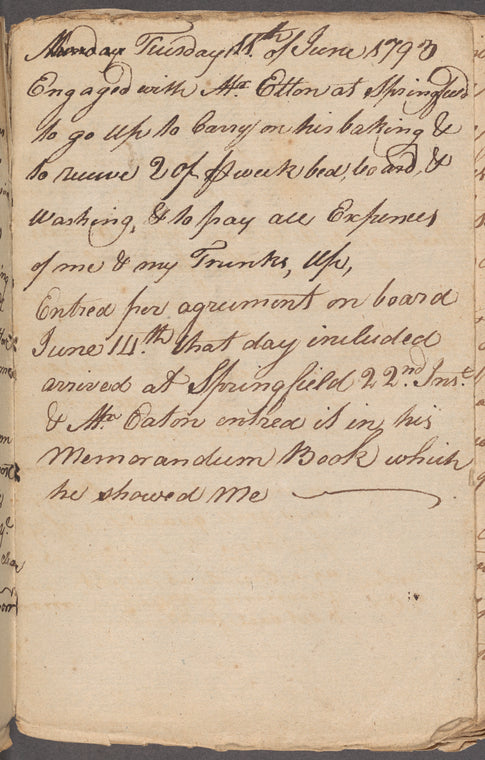 Monday Tuesday 11th of June 1793
Engaged with Mr Etton at Springfield
to go up to Carry on his baking &
to receive 2 Dollrs pr week bed, board, &
Washing, & to pay all Expences
of me & my Trunks, Up,
Entred per agrument on board
June 14th that day included
arrived at Springfield 22nd Inst
& Mr Eaton entred it in his
Memorandum Book which
he showed Me